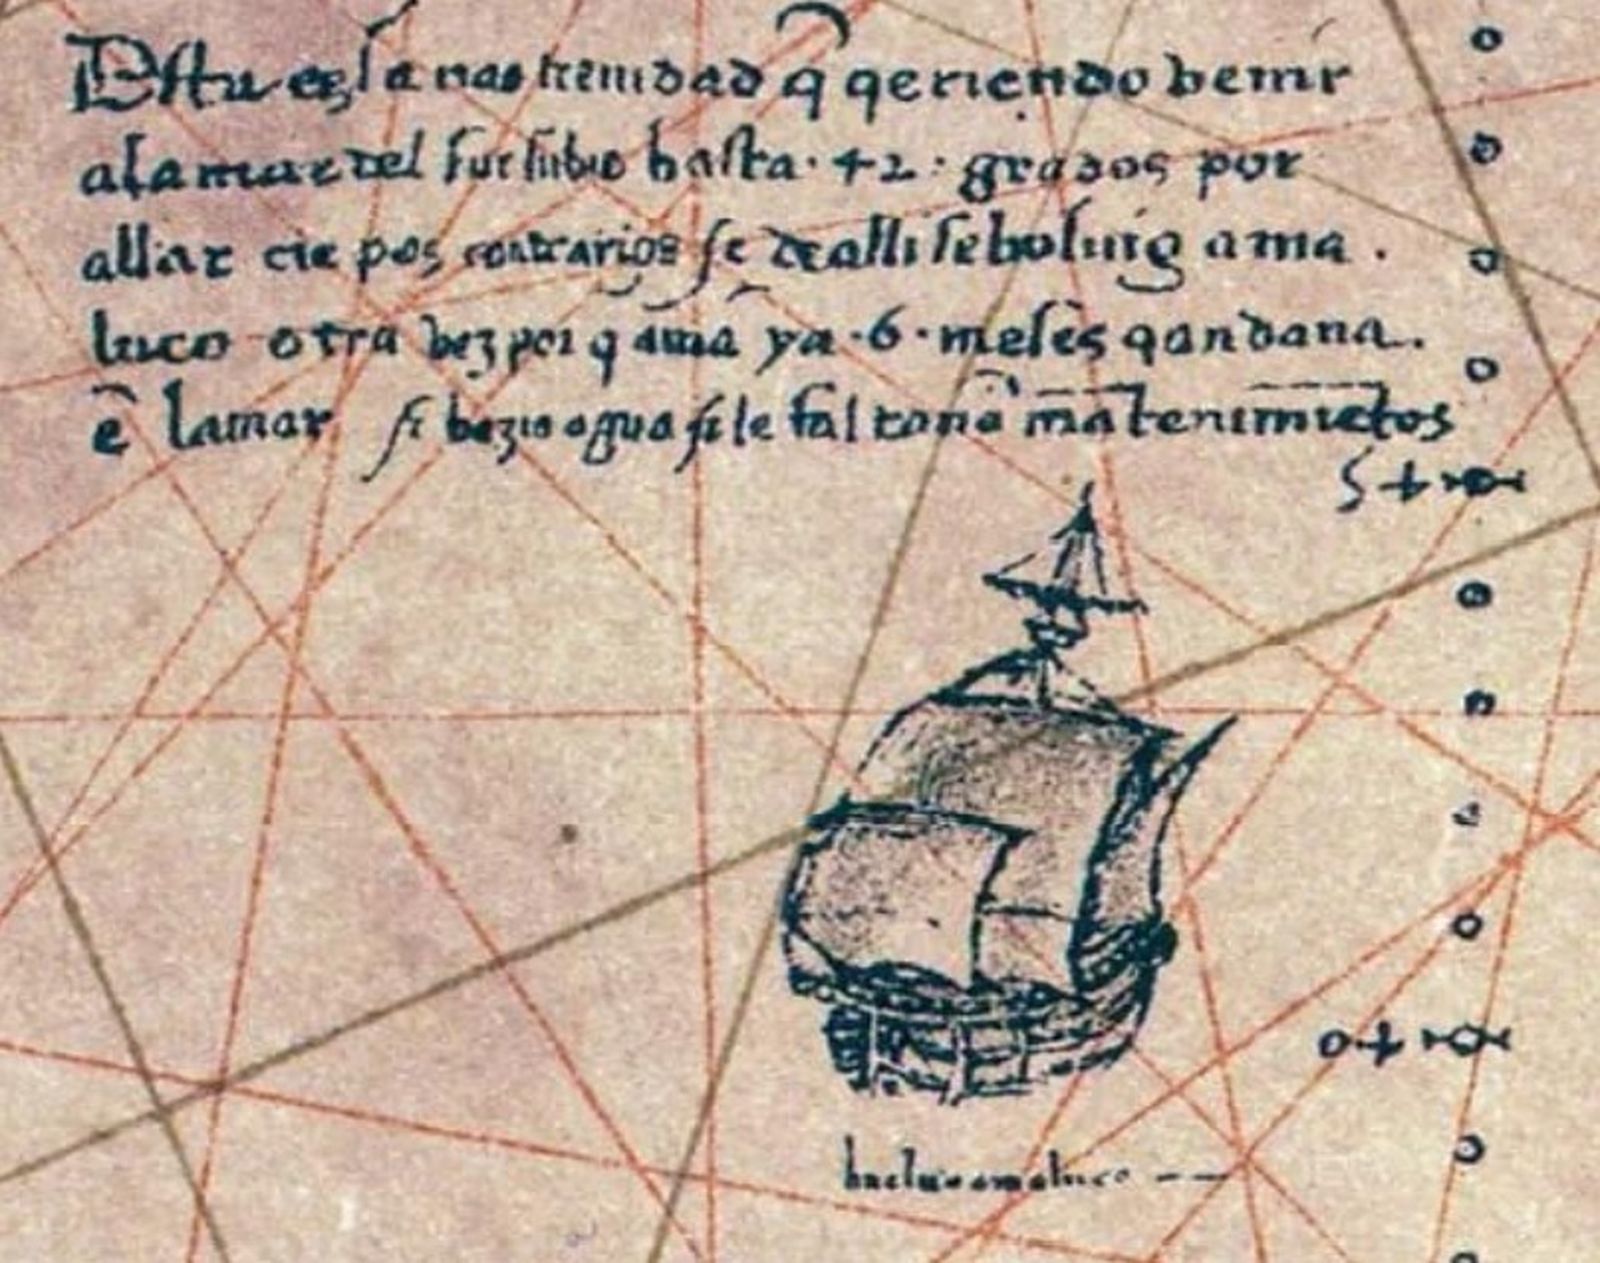 Esta es la nao trenidad q̃ qeriendo benir
a la mar del sur subio hasta · 42 · grados por
allar tienpos contrarios se de alli se boluio a ma .
luco otra bez por q̃ auia ya · 6 · meses q andaua .
ẽ la mar si hazio agua si le faltauã mãtenimiẽtos
buelue a maluco – –